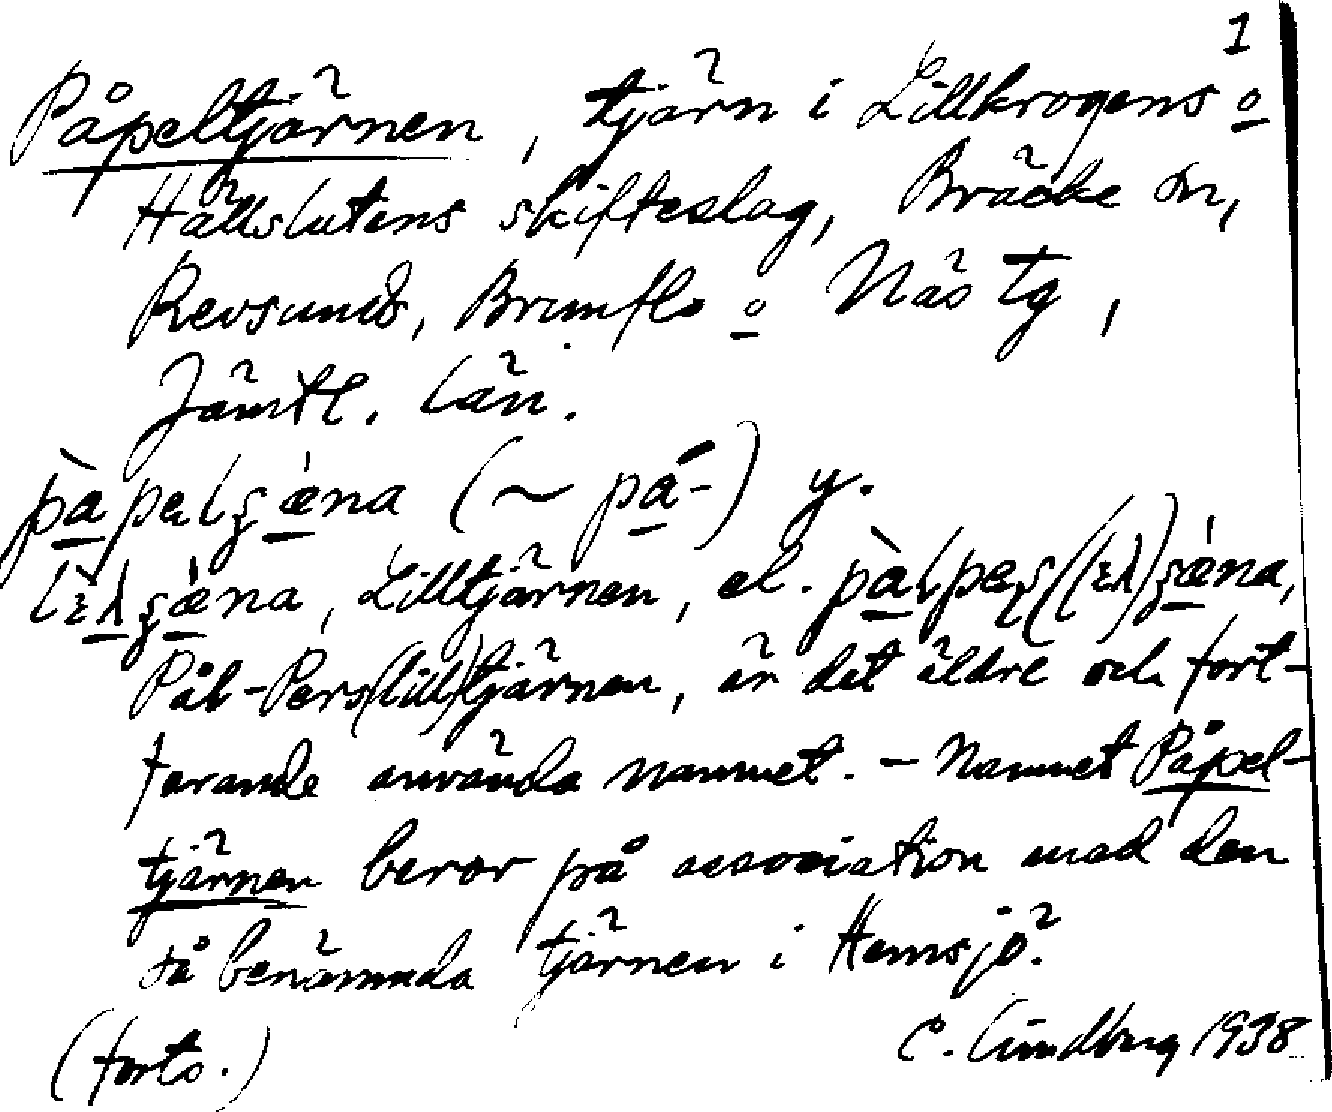 1
Påpeltjärnen, tjärn i Lillkrogens o
Hällslutens skifteslag, Bräcke sn,
Revsunds, Brunflo o Näs tg,
Jämtl. län.
(~ pá-) y.
Lilltjärnen, el.
Pål-Pers(lill)tjärnen, är det äldre och fort-
farande använda namnet. - Namnet Påpel-
tjärnen beror på association med den
så benämnda tjärnen i Hemsjö.
(forts.)
C. Lindberg 1938